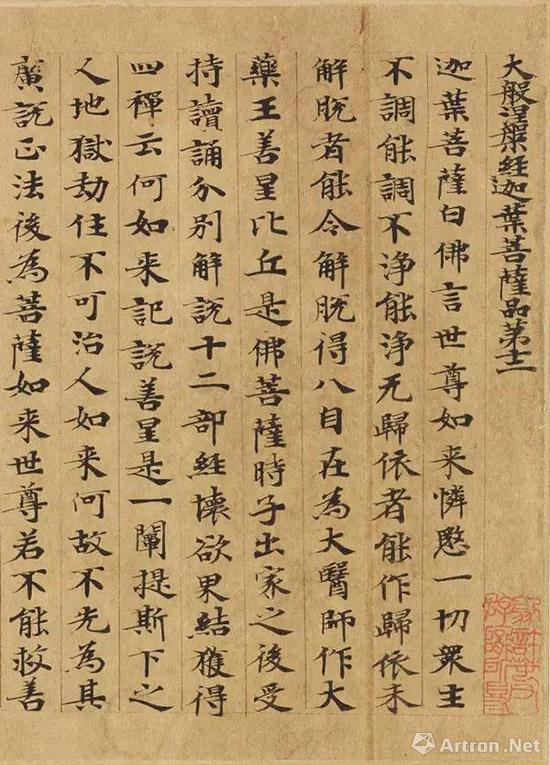 大般涅槃經迦葉菩薩品第十二
迦葉菩薩白佛言世尊如来憐愍一切衆生
不調能調不淨能淨无歸依者能作歸依未
解脫者能令解脫得八自在為大醫師作大
藥王善星比丘是佛菩薩時子出家之後受
持讀誦分別解說十二部經懷欲界結獲得
四禪云何如来記說善星是一闡提斯下之
人地獄劫住不可治人如来何故不先為其
廣說正法後為菩薩如来世尊若不能救善
Artron.Net